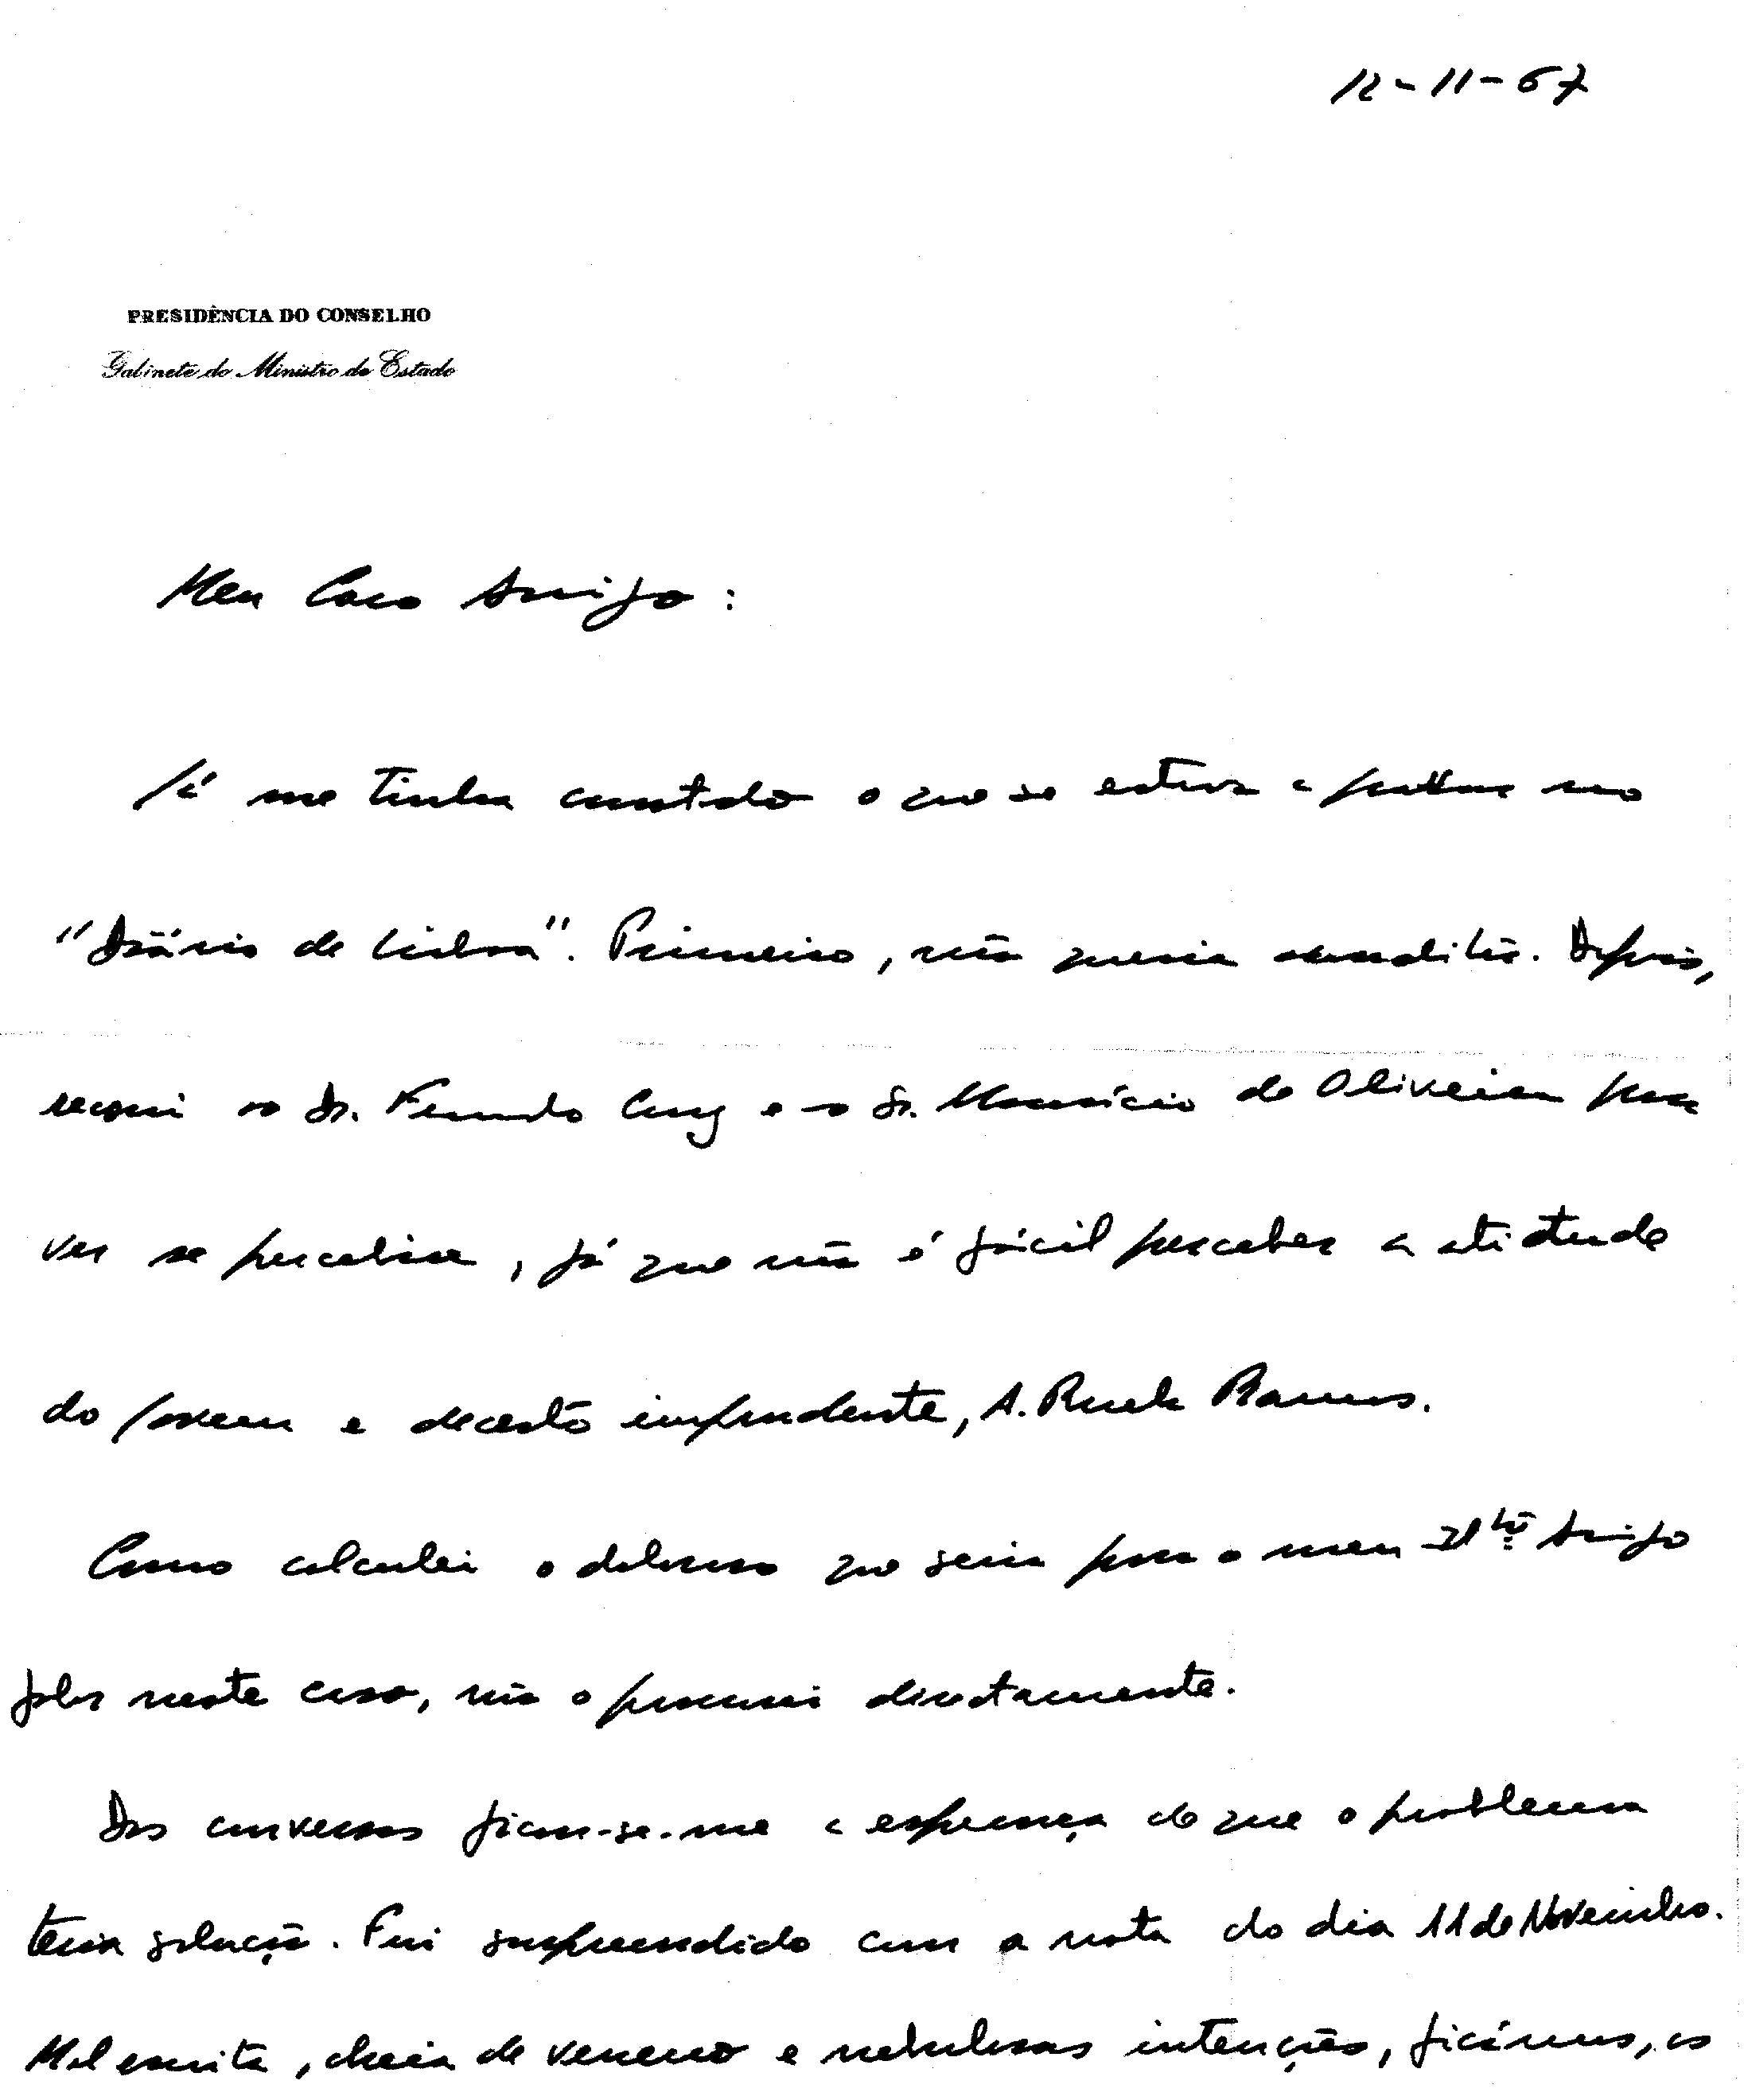 12-11-67
PRESIDÊNCIA DO CONSELHO
Gabinete do Ministro de Estado
Meu Caro Amigo:
Já me tinha constado o que se estava a passar no
"Diário de Lisboa". Primeiro, não queria acreditar. Depois,
recorri ao Dr. Fernando Cruz e ao Sr. Maurício de Oliveira para
ver se percebia, já que não é fácil perceber a atitude
do jovem e decerto imprudente, A. Ruela Ramos.
Como calculei o doloroso que seria para o meu Ilº Amigo
falar neste caso, não o procurei directamente.
Das conversas ficou-se-me a esperança de que o problema
teria solução. Fui surpreendido com a nota do dia 11 de Novembro.
Mal escrita, cheia de veneno e nebulosas intenções, ficámos, os